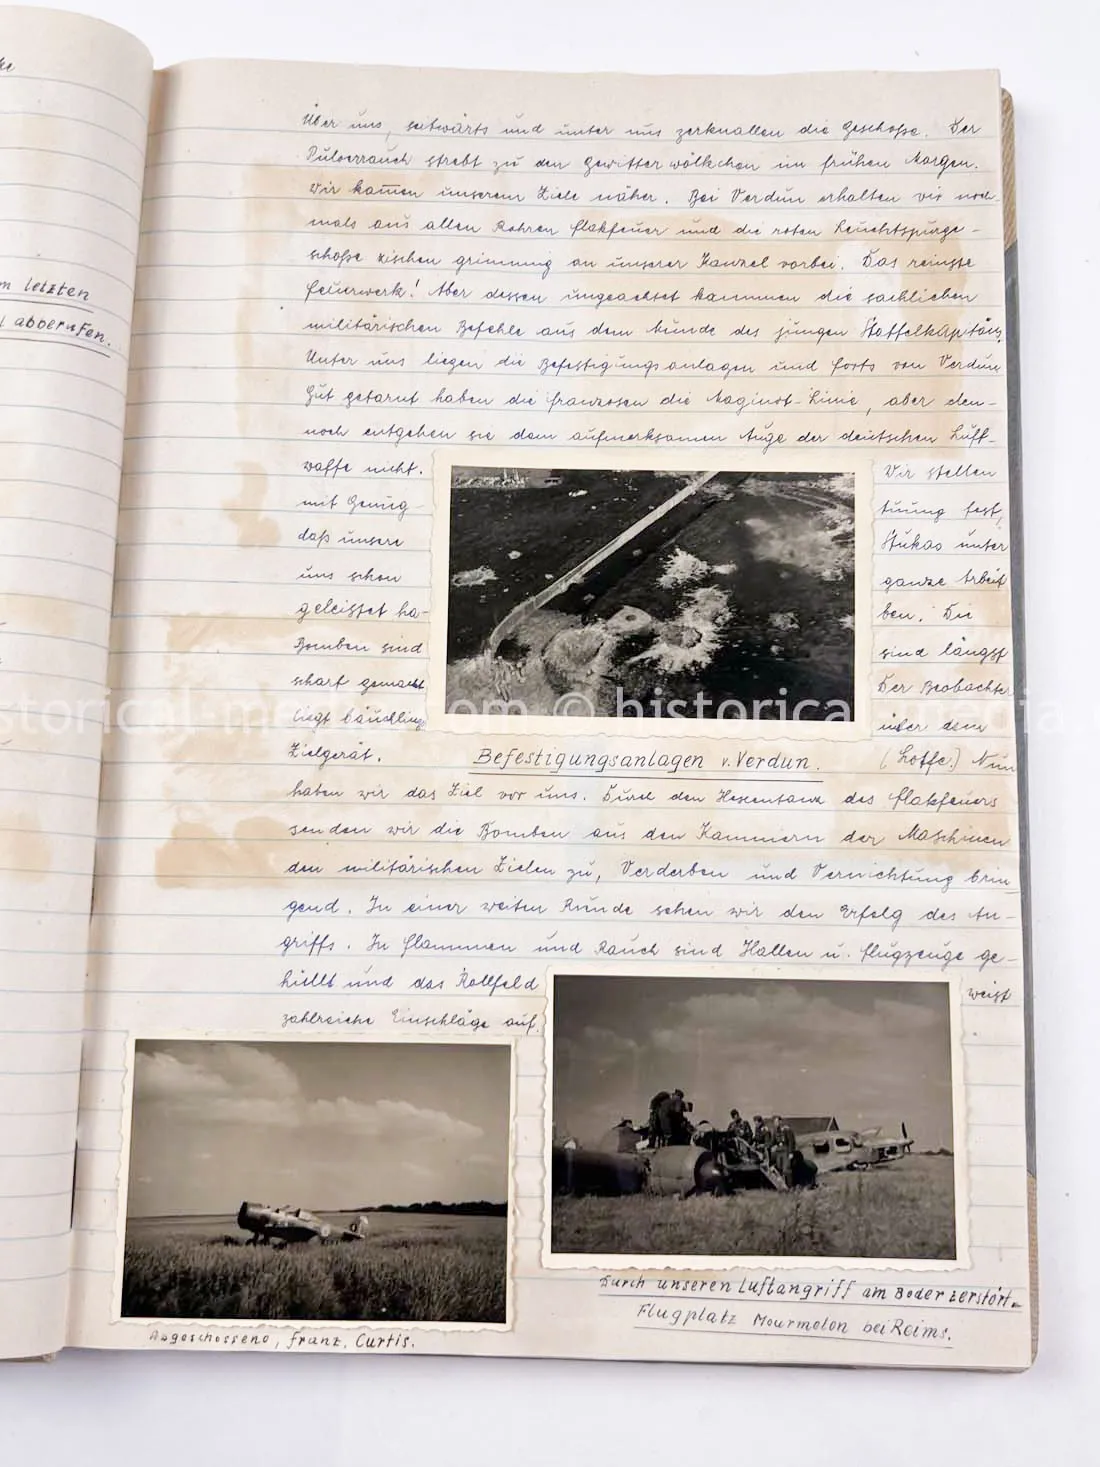 m letzten
abberufen.
Über uns, seitwärts und unter uns zerknallen die Geschoße. Der
Pulverrauch strebt zu den Gewitterwölkchen im frühen Morgen.
Wir kam̅en unserem Ziele näher. Bei Verdun erhalten wir noch-
mals aus allen Rohren Flakfeuer und die roten Leuchtspurge-
schoße zischen grimmig an unserer Kanzel vorbei. Das reinste
Feuerwerk! Aber dessen ungeachtet kommen die sachlichen
militärischen Befehle aus dem Munde des jungen Staffelkapitäns.
Unter uns liegen die Befestigungsanlagen und Forts von Verdun
Gut getarnt haben die Franzosen die Maginot-Linie, aber den-
noch entgehen sie dem aufmerksamen Auge der deutschen Luft-
waffe nicht. Wir stellen
mit Genug- tuung fest,
daß unsere Stukas unter
uns schon ganze Arbeit
geleistet ha- ben. Die
Bomben sind sind längst
scharf gemacht Der Beobachter
liegt bäuchlings über dem
Zielgerät. (Lotfe.) Nun
Befestigungsanlagen v. Verdun.
haben wir das Ziel vor uns. Durch den Hexentanz des Flakfeuers
senden wir die Bomben aus den Kammern der Maschinen
den militärischen Zielen zu, Verderben und Vernichtung brin-
gend. In einer weiten Runde sehen wir den Erfolg des An-
griffs. In Flammen und Rauch sind Hallen u. Flugzeuge ge-
hüllt und das Rollfeld weist
zahlreiche Einschläge auf.
Abgeschossene, franz. Curtis.
Durch unseren Luftangriff am Boden zerstört.
Flugplatz Mourmelon bei Reims.
historical-media.com © historical-media